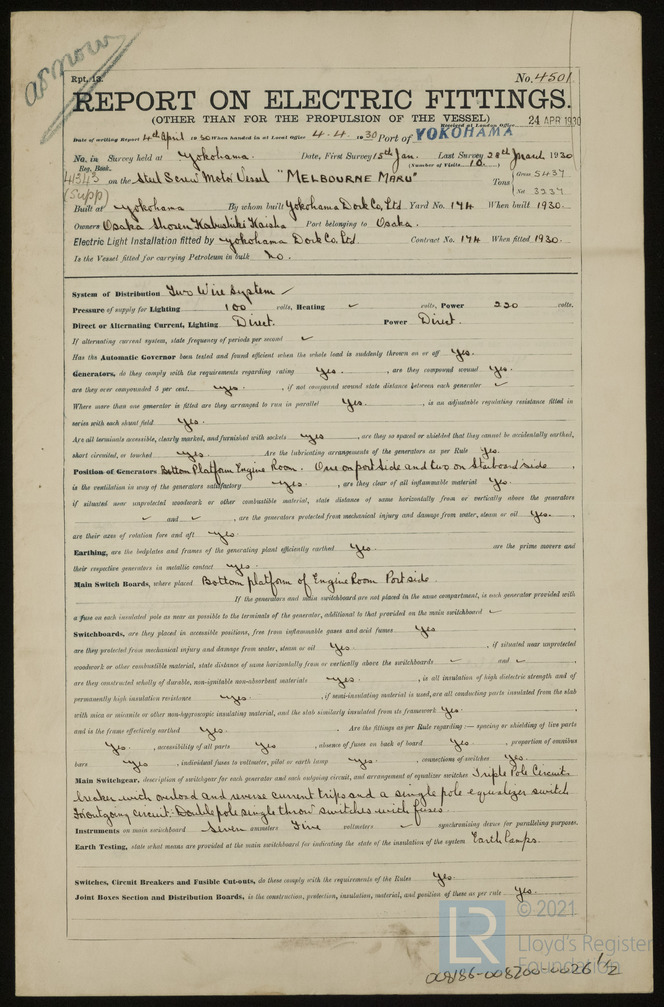 as now
Rpt. 13.
No. 4501
REPORT ON ELECTRIC FITTINGS.
(OTHER THAN FOR THE PROPULSION OF THE VESSEL)
Received at London Office 24 APR 1930
Date of writing Report 4th April 1930 When handed in at Local Office 4.4.1930 Port of YOKOHAMA
No. in Survey held at Yokohama. Date, First Survey 15th Jan. Last Survey 28th March 1930
Reg. Book. (Number of Visits 10.)
41343 on the Steel Screw Motor Vessel "MELBOURNE MARU" Tons Gross 5437
(Supp) Net 3237
Built at Yokohama By whom built Yokohama Dock Co, Ltd Yard No. 174 When built 1930.
Owners Osaka Shosen Kabushiki Kaisha Port belonging to Osaka.
Electric Light Installation fitted by Yokohama Dock Co. Ltd. Contract No. 174 When fitted 1930.
Is the Vessel fitted for carrying Petroleum in bulk No.
System of Distribution Two Wire System
Pressure of supply for Lighting 100 volts, Heating ✓ volts, Power 220 volts.
Direct or Alternating Current, Lighting Direct. Power Direct.
If alternating current system, state frequency of periods per second ✓
Has the Automatic Governor been tested and found efficient when the whole load is suddenly thrown on or off Yes.
Generators, do they comply with the requirements regarding rating Yes. , are they compound wound Yes.
are they over compounded 5 per cent. Yes. , if not compound wound state distance between each generator ✓
Where more than one generator is fitted are they arranged to run in parallel Yes. , is an adjustable regulating resistance fitted in
series with each shunt field Yes.
Are all terminals accessible, clearly marked, and furnished with sockets Yes , are they so spaced or shielded that they cannot be accidentally earthed,
short circuited, or touched Yes. Are the lubricating arrangements of the generators as per Rule Yes.
Position of Generators Bottom Platform Engine Room. One on port side and two on Starboard side
is the ventilation in way of the generators satisfactory Yes. , are they clear of all inflammable material Yes.
if situated near unprotected woodwork or other combustible material, state distance of same horizontally from or vertically above the generators
✓ and ✓ , are the generators protected from mechanical injury and damage from water, steam or oil Yes.
are their axes of rotation fore and aft Yes.
Earthing, are the bedplates and frames of the generating plant efficiently earthed Yes. are the prime movers and
their respective generators in metallic contact Yes.
Main Switch Boards, where placed Bottom platform of Engine Room Port side.
If the generators and main switchboard are not placed in the same compartment, is each generator provided with
a fuse on each insulated pole as near as possible to the terminals of the generator, additional to that provided on the main switchboard ✓
Switchboards, are they placed in accessible positions, free from inflammable gases and acid fumes Yes
are they protected from mechanical injury and damage from water, steam or oil Yes. , if situated near unprotected
woodwork or other combustible material, state distance of same horizontally from or vertically above the switchboards ✓ and ✓
are they constructed wholly of durable, non-ignitable non-absorbent materials Yes. , is all insulation of high dielectric strength and of
permanently high insulation resistance Yes. , if semi-insulating material is used, are all conducting parts insulated from the slab
with mica or micanite or other non-hygroscopic insulating material, and the slab similarly insulated from its framework Yes.
and is the frame effectively earthed Yes. Are the fittings as per Rule regarding :— spacing or shielding of live parts
Yes. , accessibility of all parts Yes. , absence of fuses on back of board Yes. , proportion of omnibus
bars Yes , individual fuses to voltmeter, pilot or earth lamp Yes. , connections of switches Yes.
Main Switchgear, description of switchgear for each generator and each outgoing circuit, and arrangement of equalizer switches Triple Pole Circuit
breaker with overload and reverse current trips and a single pole equalizer switch
For outgoing circuit. Double pole single throw switches with fuses.
Instruments on main switchboard Seven ammeters Five voltmeters ✓ synchronising device for paralleling purposes.
Earth Testing, state what means are provided at the main switchboard for indicating the state of the insulation of the system Earth lamps.
Switches, Circuit Breakers and Fusible Cut-outs, do these comply with the requirements of the Rules Yes.
Joint Boxes Section and Distribution Boards, is the construction, protection, insulation, material, and position of these as per rule Yes.
LR
© 2021
Lloyd's Register
Foundation
008186-008200-0026 1/2